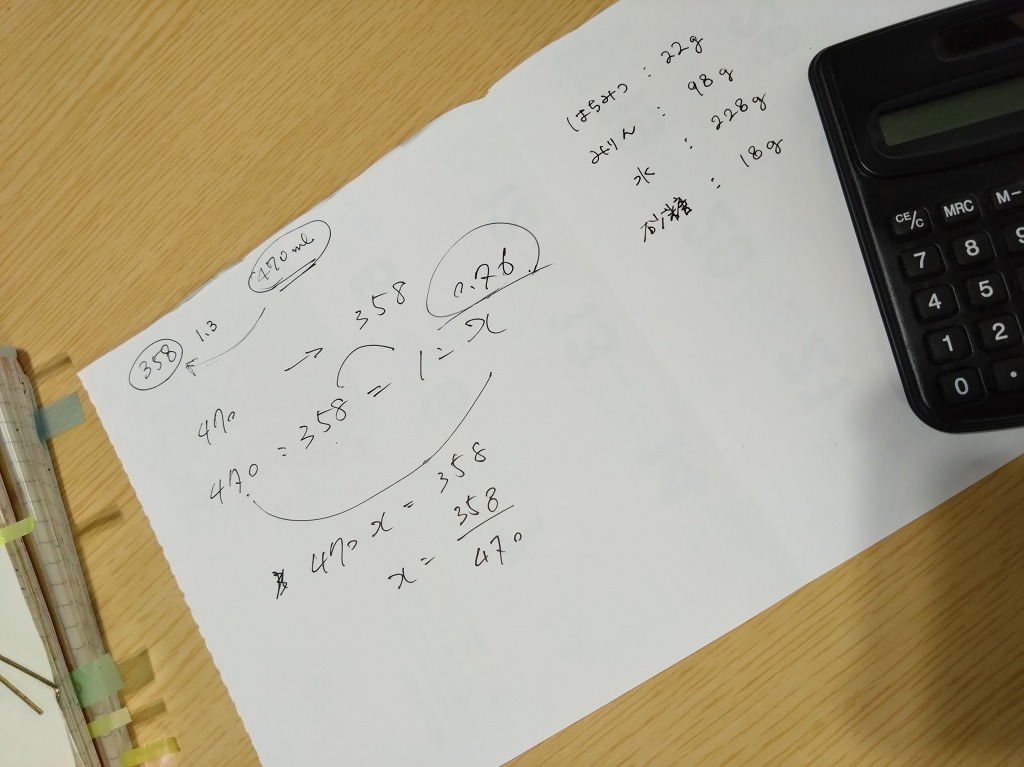 はちみつ : 22g
みりん : 98g
水 : 228g
砂糖 : 18g
470ml
358 1.3
470 → 358
0.76
470 = 358 = 1 = x
470 x = 358
x = 358
470
CE/C MRC M-
7 8 9
4 5
1 2
0 .